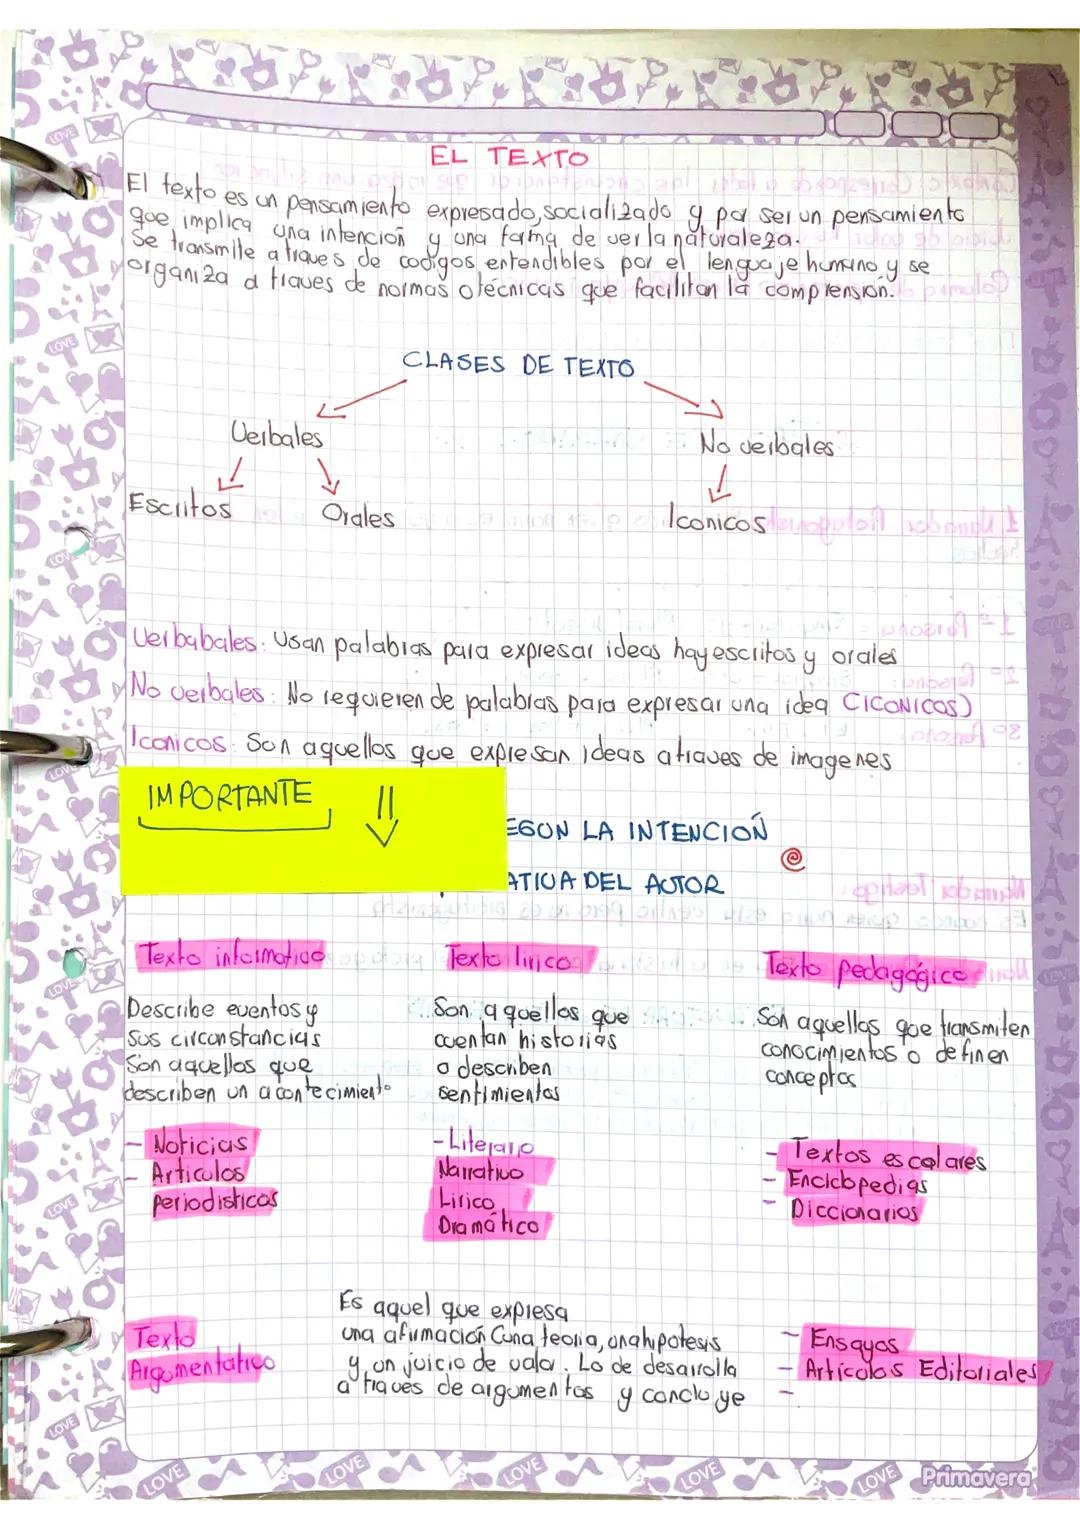 EL TEXTO
El texto es un pensamiento expresado, socializado y por ser un pensamiento
que implica una intención y una forma de ver la naturaleza.
Se transmite atraves de codigos entendibles por el lenguaje humano y se
organiza a traves de normas o técnicas que facilitan la comprensión.
CLASES DE TEXTO
Verbales
No verbales
Escritos
Orales
Iconicos
Verbabales: Usan palabras para expresar ideas hay escritos y orales
No verbales: No requieren de palabras para expresar una idea (ICONICOS)
Iconicos: Son aquellos que expresan ideas atraves de imagenes
IMPORTANTE
EGUN LA INTENCIÓN
ATIVA DEL AUTOR
Texto informativo
Texto lirico
Texto pedagógico
Describe eventos y
sus circunstancias
Son aquellos que
describen un acontecimiento
Son aquellos que
cuentan historias
o describen
sentimientos
Són aquellos que transmiten
conocimientos o definen
conceptos
- Noticias
- Articulos
periodisticos
- Literario
Narrativo
Lirico
Dramático
- Textos escolares
- Enciclopedias
- Diccionarios
Texto
Argumentativo
Es aquel que expresa
una afirmación (una teoria, una hipotesis
y un juicio de valor. Lo de desarrolla
a traves de argumentos y concluye
- Ensayos
- Artículos Editoriales
-
LOVE
LOVE
LOVE
LOVE
LOVE
Primavera